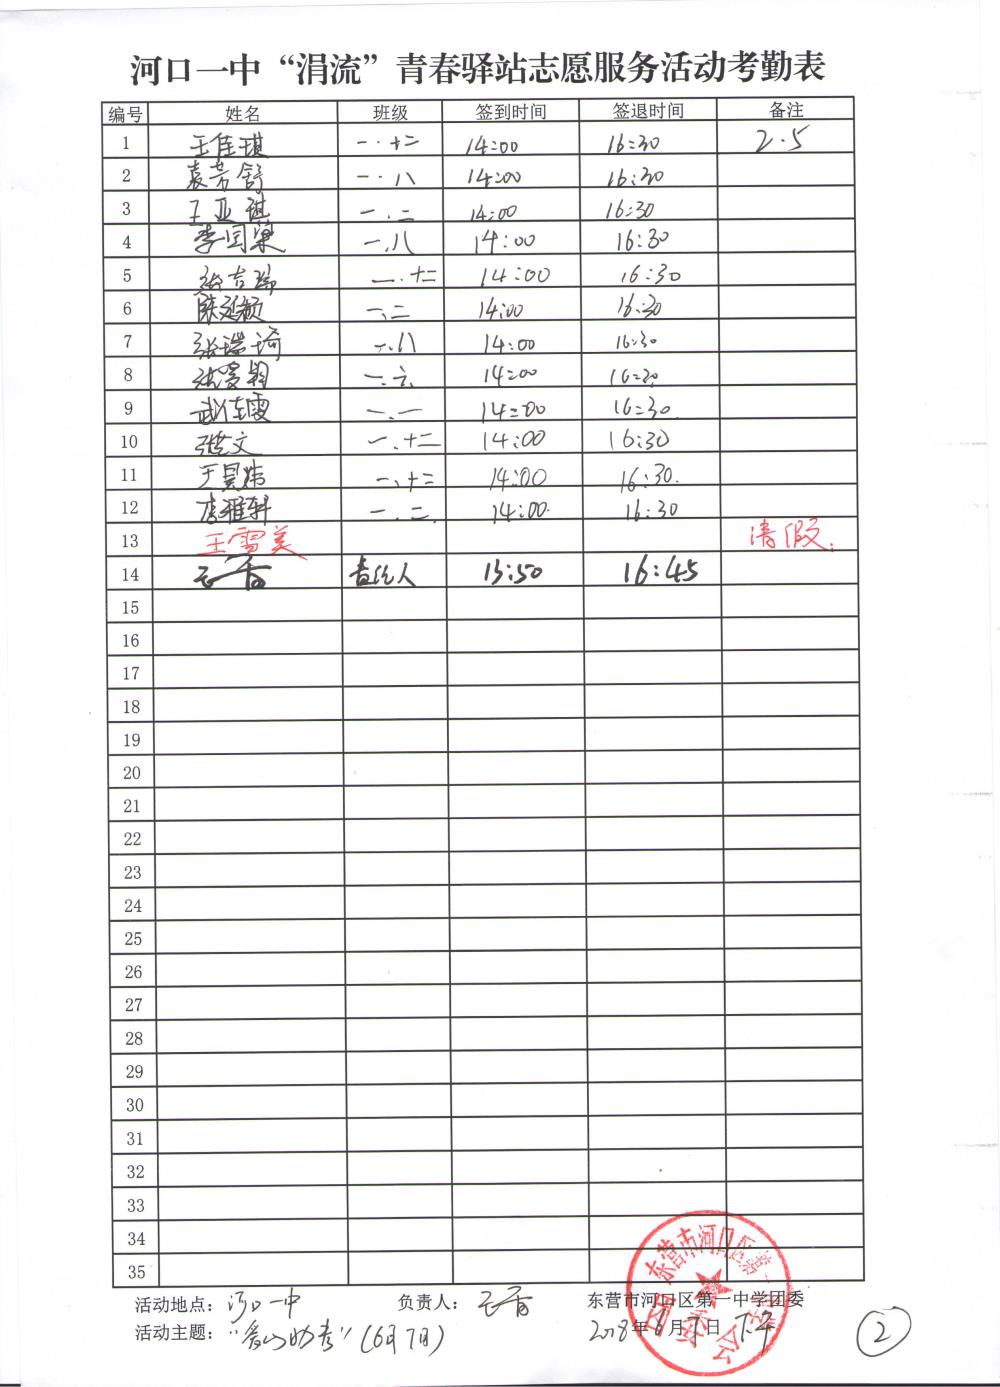 河口一中“涓流”青春驿站志愿服务活动考勤表
编号 姓名 班级 签到时间 签退时间 备注
1 王佳琪 一.十二 14:00 16:30 2.5
2 袁芳舒 一.八 14:00 16:30
3 王亚琪 一.二 14:00 16:30
4 李同 一.八 14:00 16:30
5 张吉瑞 一.十二 14:00 16:30
6 陈延颖 一.二 14:00 16:30
7 张瑞琦 一.八 14:00 16:30
8 一.六 14:00 16:30
9 武佳霞 一.一 14:00 16:30
10 张文 一.十二 14:00 16:30
11 王昊炜 一.十二 14:00 16:30.
12 李雅轩 一.二 14:00 16:30
13 王雪美 请假.
14 负责人 13:50 16:45
15
16
17
18
19
20
21
22
23
24
25
26
27
28
29
30
31
32
33
34
35
活动地点：河口一中 负责人： 东营市河口区第一中学团委
活动主题：“爱心助考”（6月7日） 2018年6月7日 下午 2